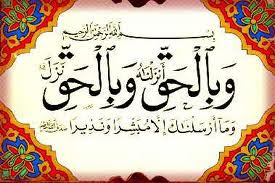 بِسْمِ اللَّهِ الرَّحْمَنِ الرَّحِيمِ
وَبِالْحَقِّ أَنْزَلْنَاهُ وَبِالْحَقِّ نَزَلَ
وَمَا أَرْسَلْنَاكَ إِلَّا مُبَشِّرًا وَنَذِيرًا